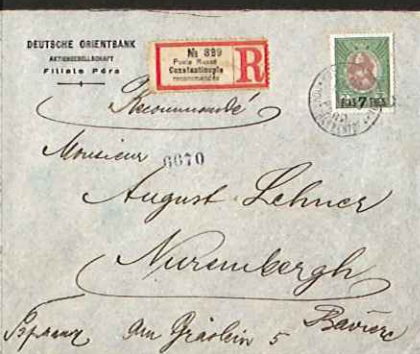 DEUTSCHE ORIENTBANK
AKTIENGESELLSCHAFT
Filiale Péra
№ 899
Poste Russe
Constantinople
recommandée
R
PIAS 7 ПІАС
Recommandé
Monsieur
6670
August Lehner
Nurembergh
Bavière
am Gräslein 5